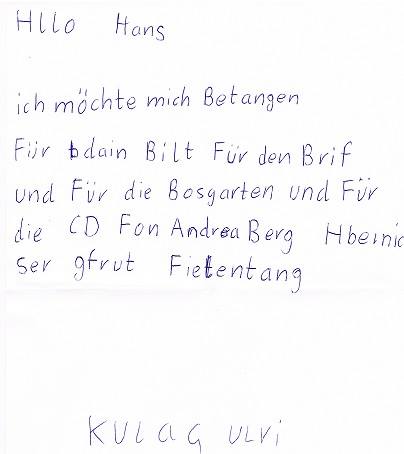 Hllo Hans
ich möchte mich Betangen
Für dain Bilt Für den Brif
und Für die Bosgarten und Für
die CD Fon Andrea Berg Hbeinic
ser gfrut Fieltentang
KULAG ULVi